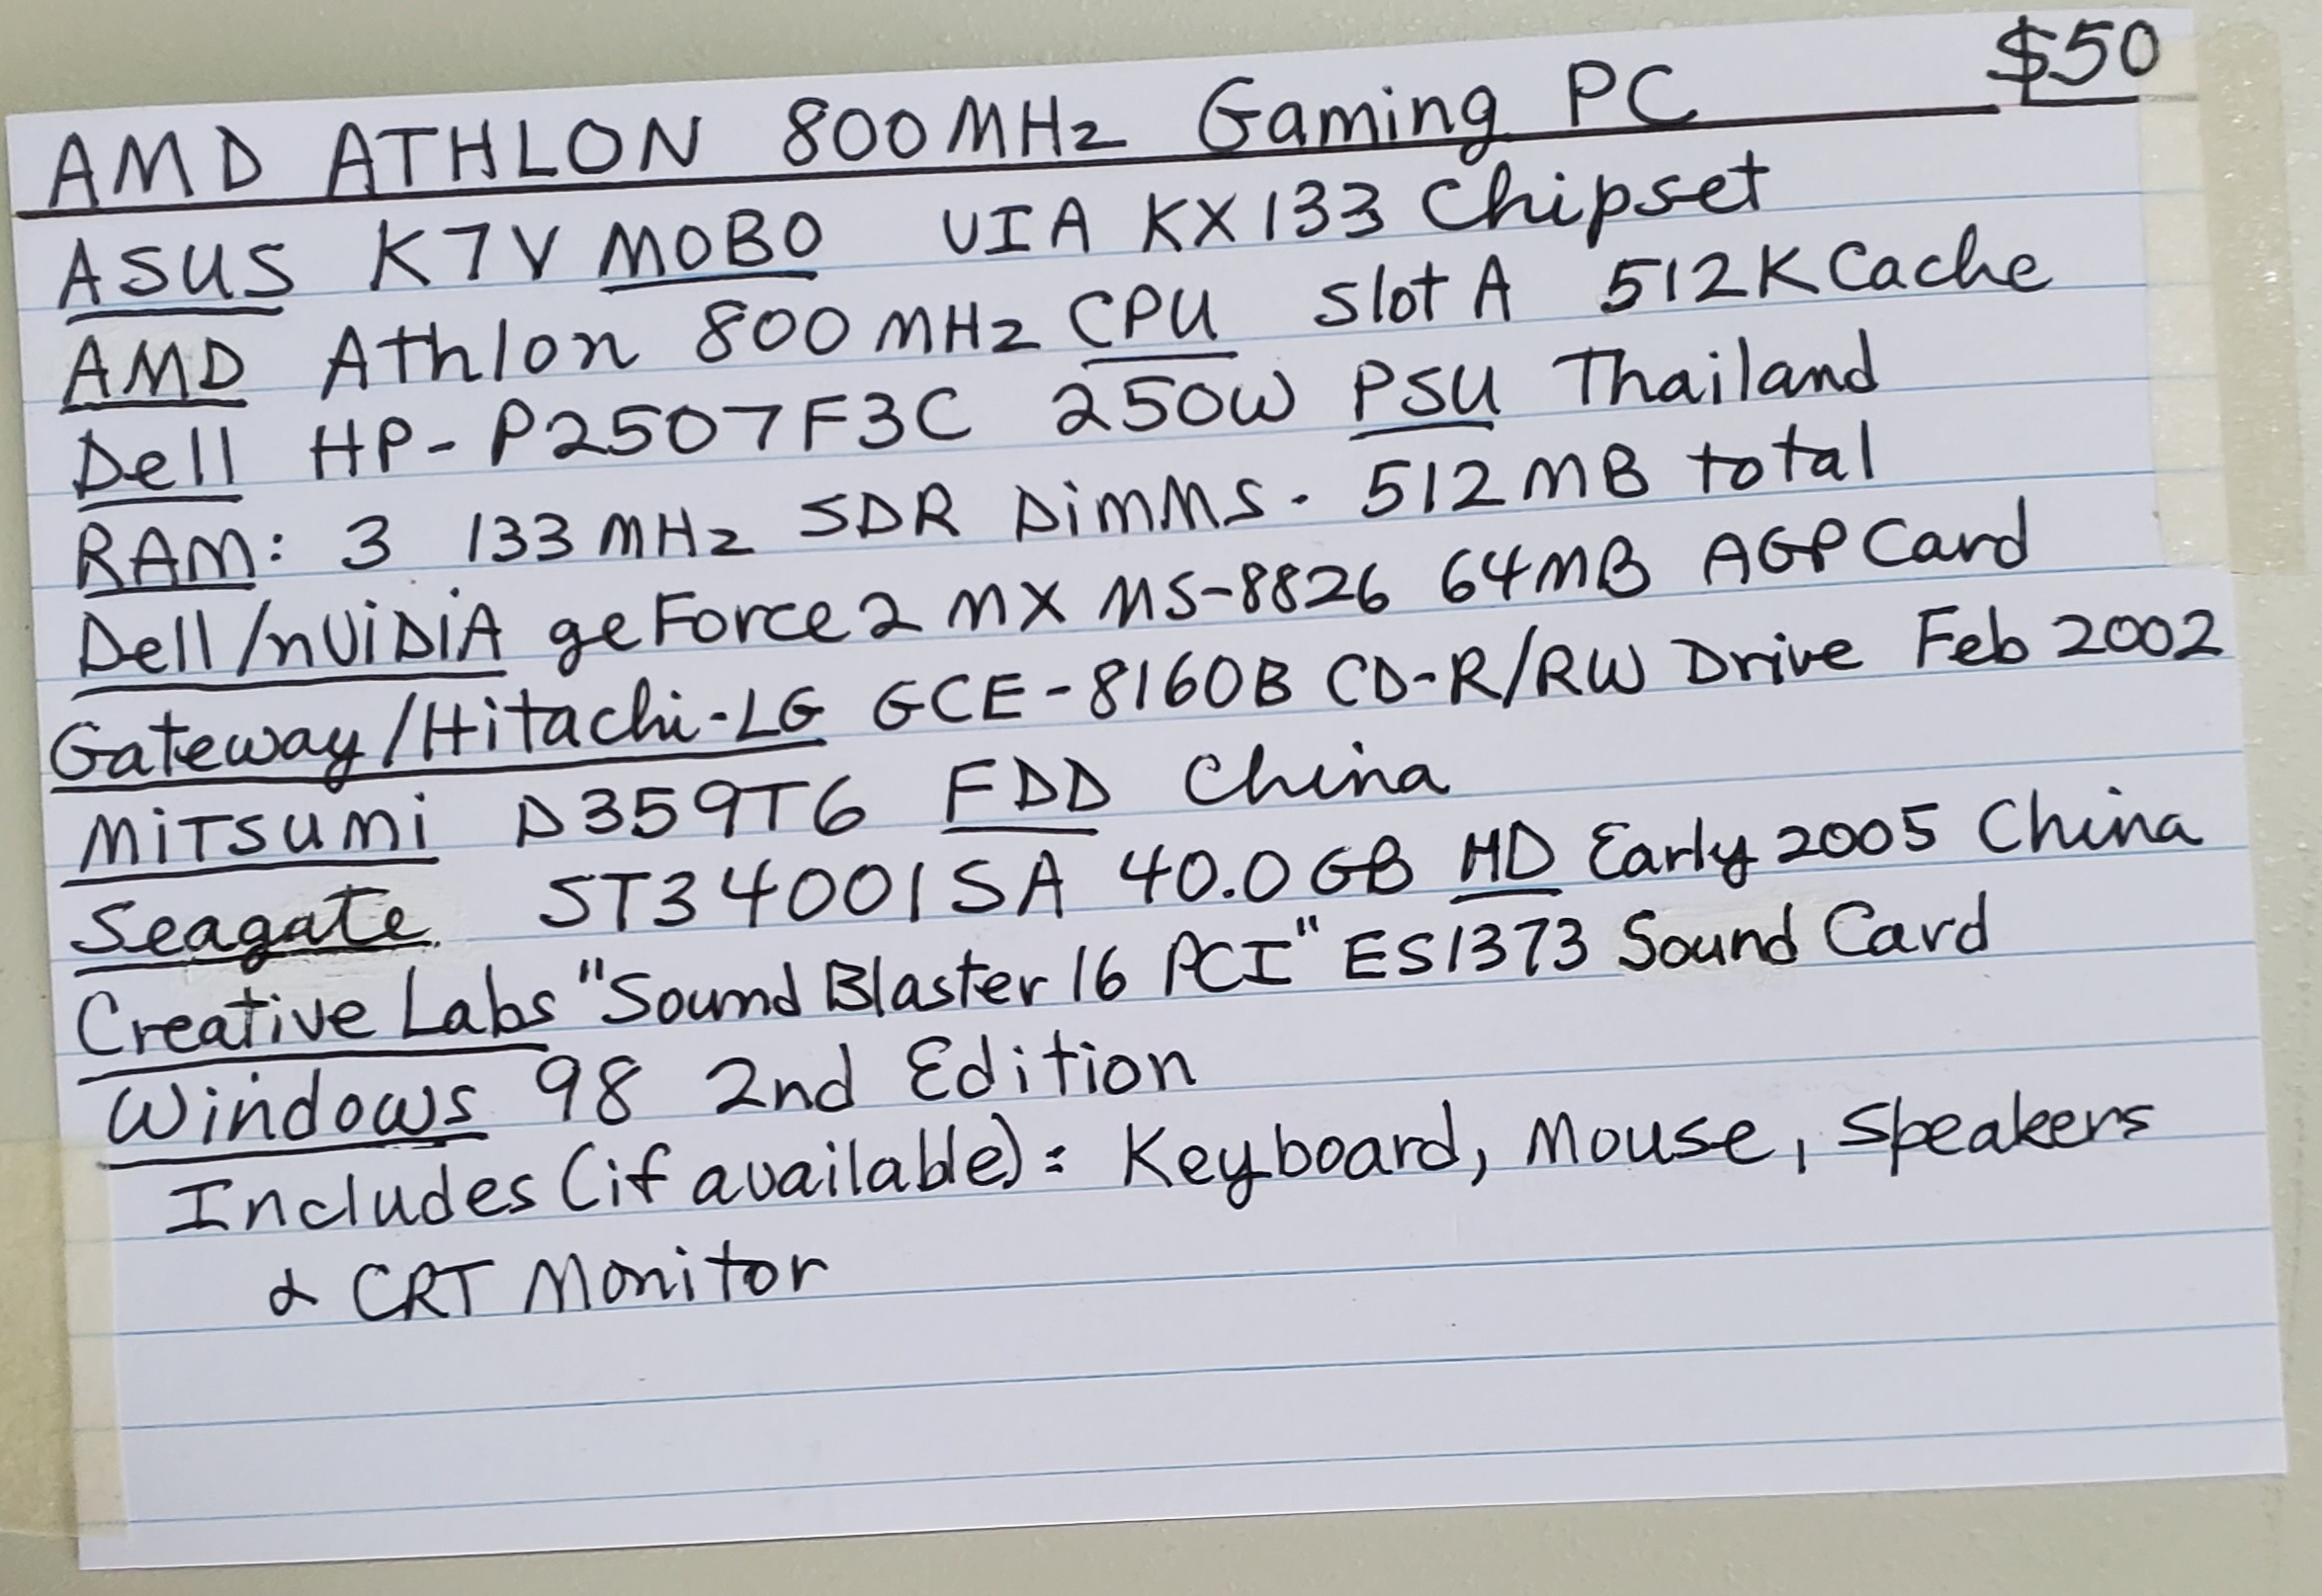 AMD ATHLON 800MHz Gaming PC $50
ASUS K7V MOBO VIA KX133 Chipset
AMD Athlon 800MHz CPU Slot A 512K Cache
Dell HP-P2507F3C 250W PSU Thailand
RAM: 3 133MHz SDR DimMs. 512MB total
Dell/nViDiA geForce2 MX MS-8826 64MB AGP Card
Gateway/Hitachi-LG GCE-8160B CD-R/RW Drive Feb 2002
MiTsumi D359T6 FDD China
Seagate ST340015A 40.0GB HD Early 2005 China
Creative Labs "Sound Blaster 16 PCI" ES1373 Sound Card
Windows 98 2nd Edition
Includes (if available): Keyboard, Mouse, Speakers
& CRT Monitor